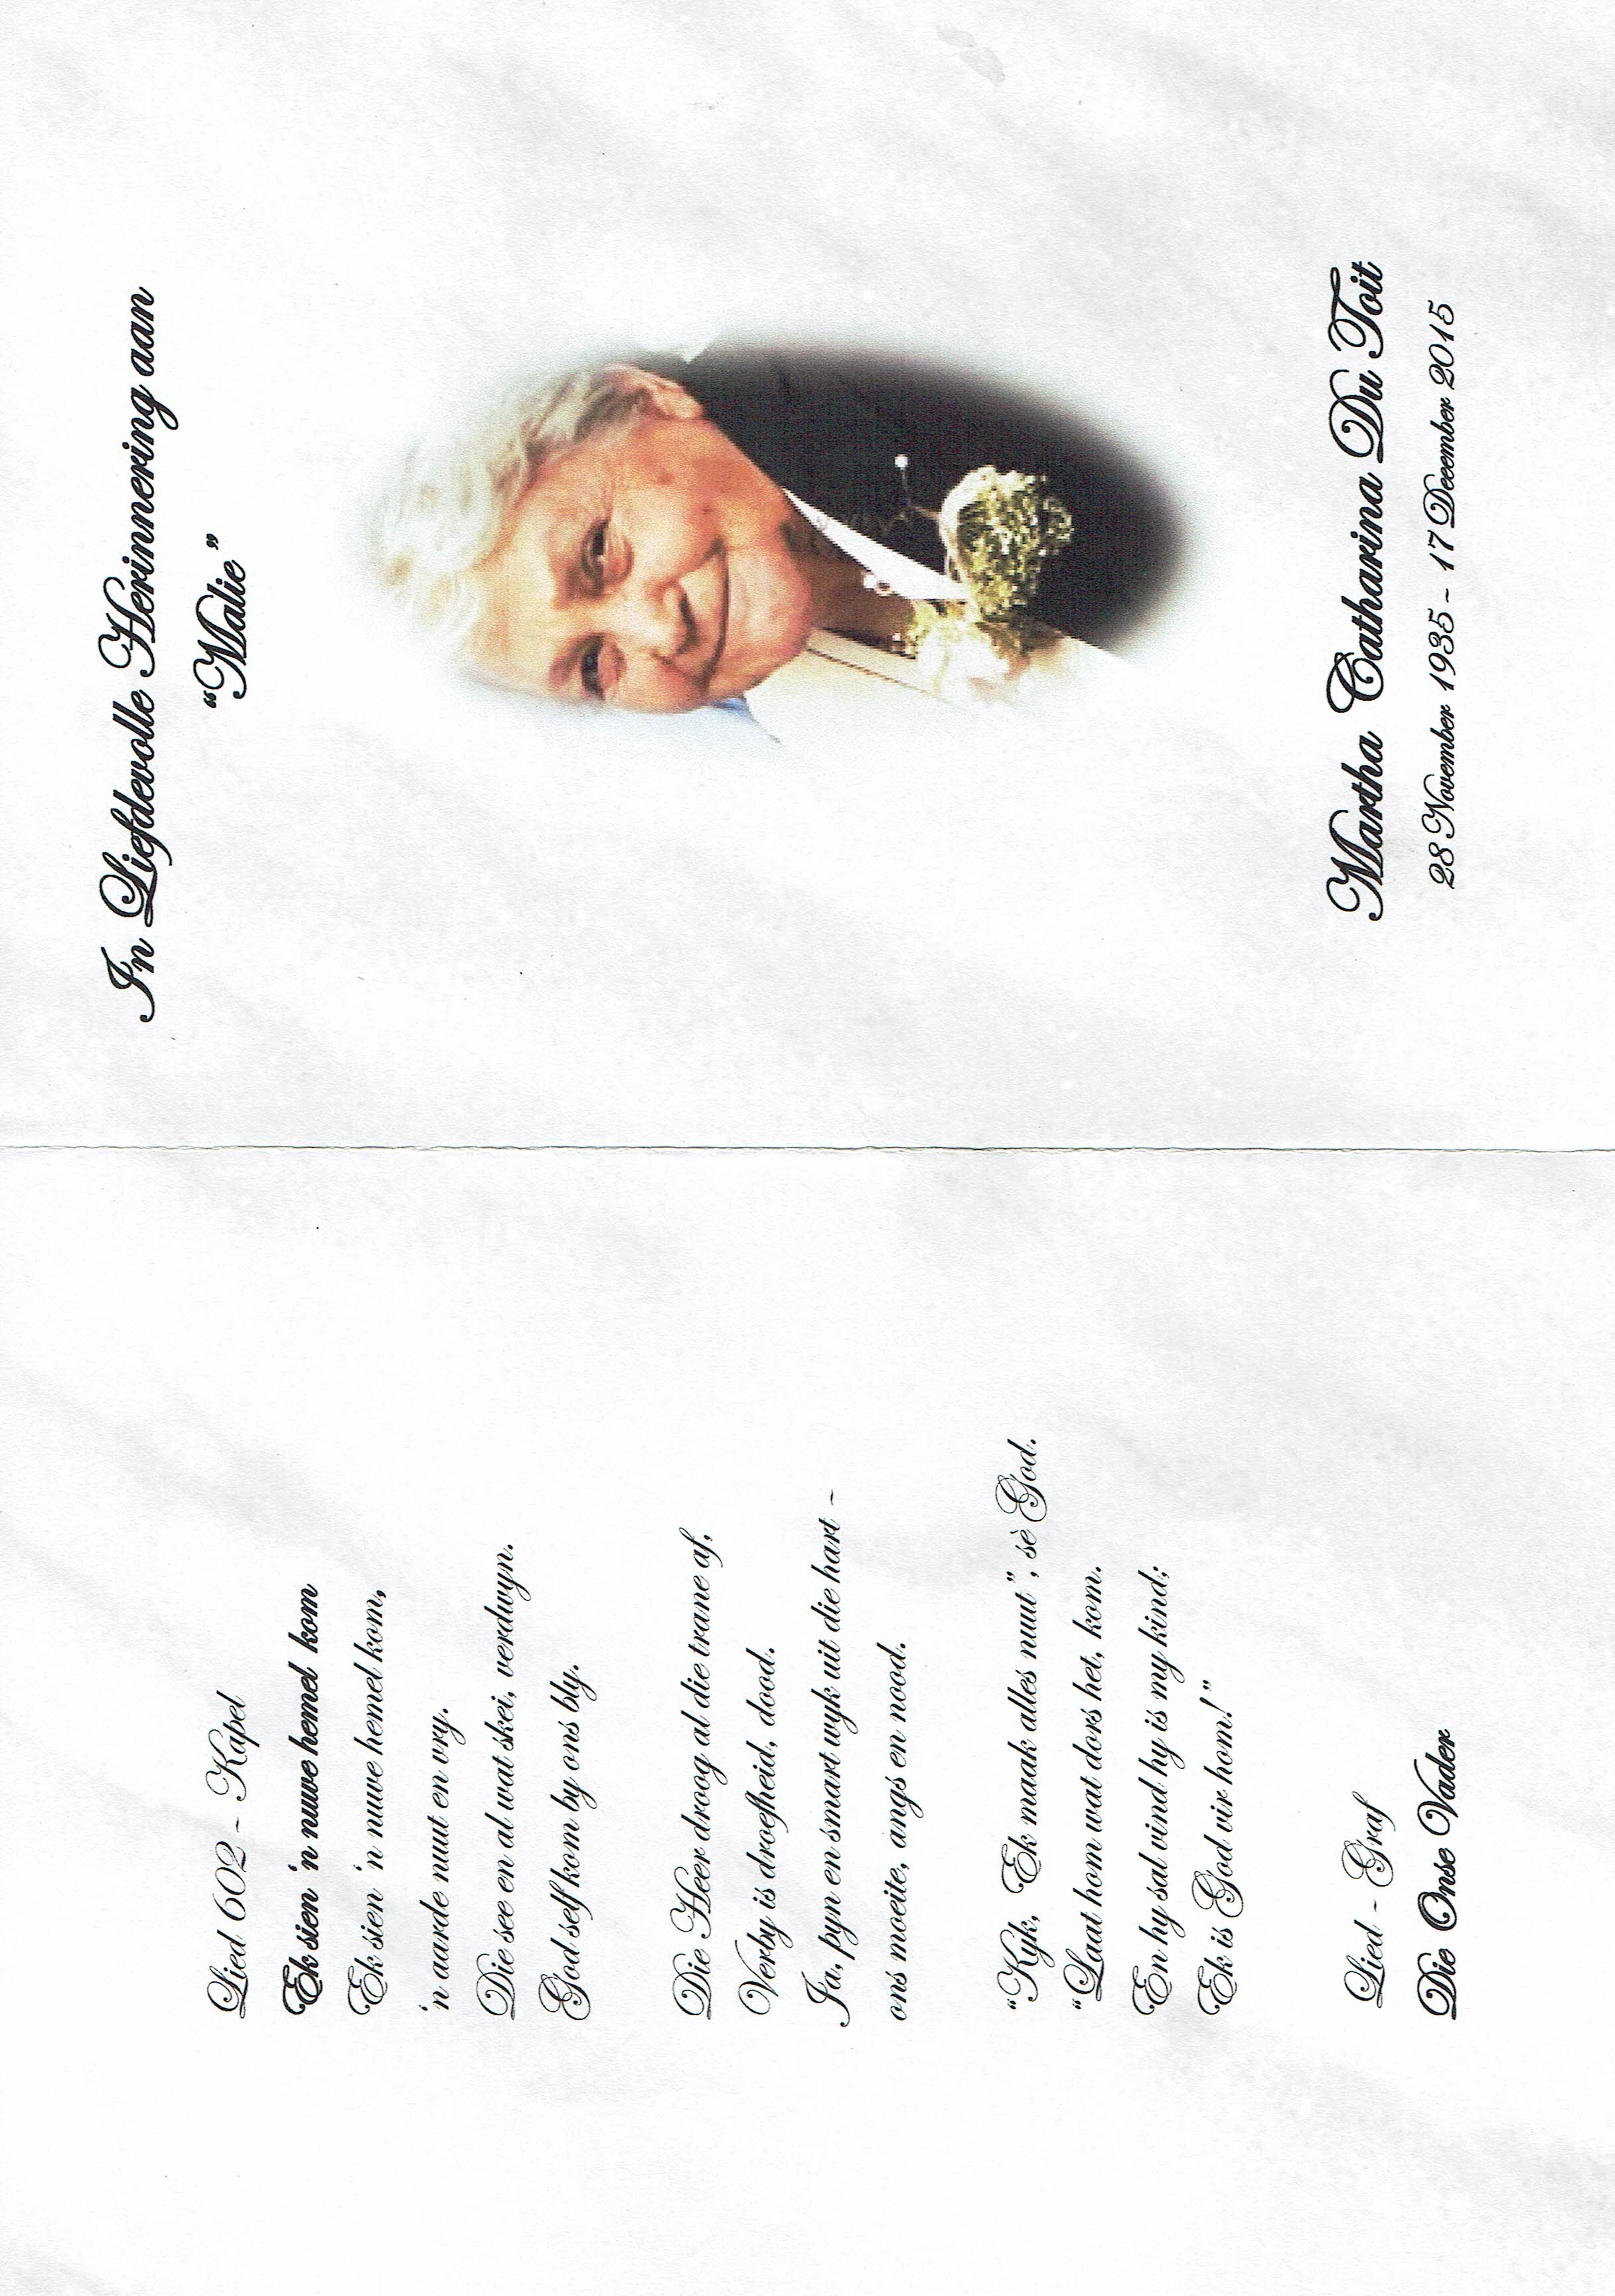 In Liefdevolle Herinnering aan
“Malie”
Martha Catharina Du Toit
28 November 1935 ~ 17 December 2015
Lied 602 ~ Kapel
Ek sien 'n nuwe hemel kom
Ek sien 'n nuwe hemel kom,
'n aarde nuut en vry.
Die see en al wat skei, verdwyn.
God self kom by ons bly.
Die Heer droog al die trane af,
Verby is droefheid, dood.
Ja, pyn en smart wyk uit die hart ~
ons moeite, angs en nood.
“Kyk, Ek maak alles nuut”, sè God.
“Laat hom wat dors het, kom.
En hy sal vind hy is my kind;
Ek is God vir hom!”
Lied - Graf
Die Onse Vader